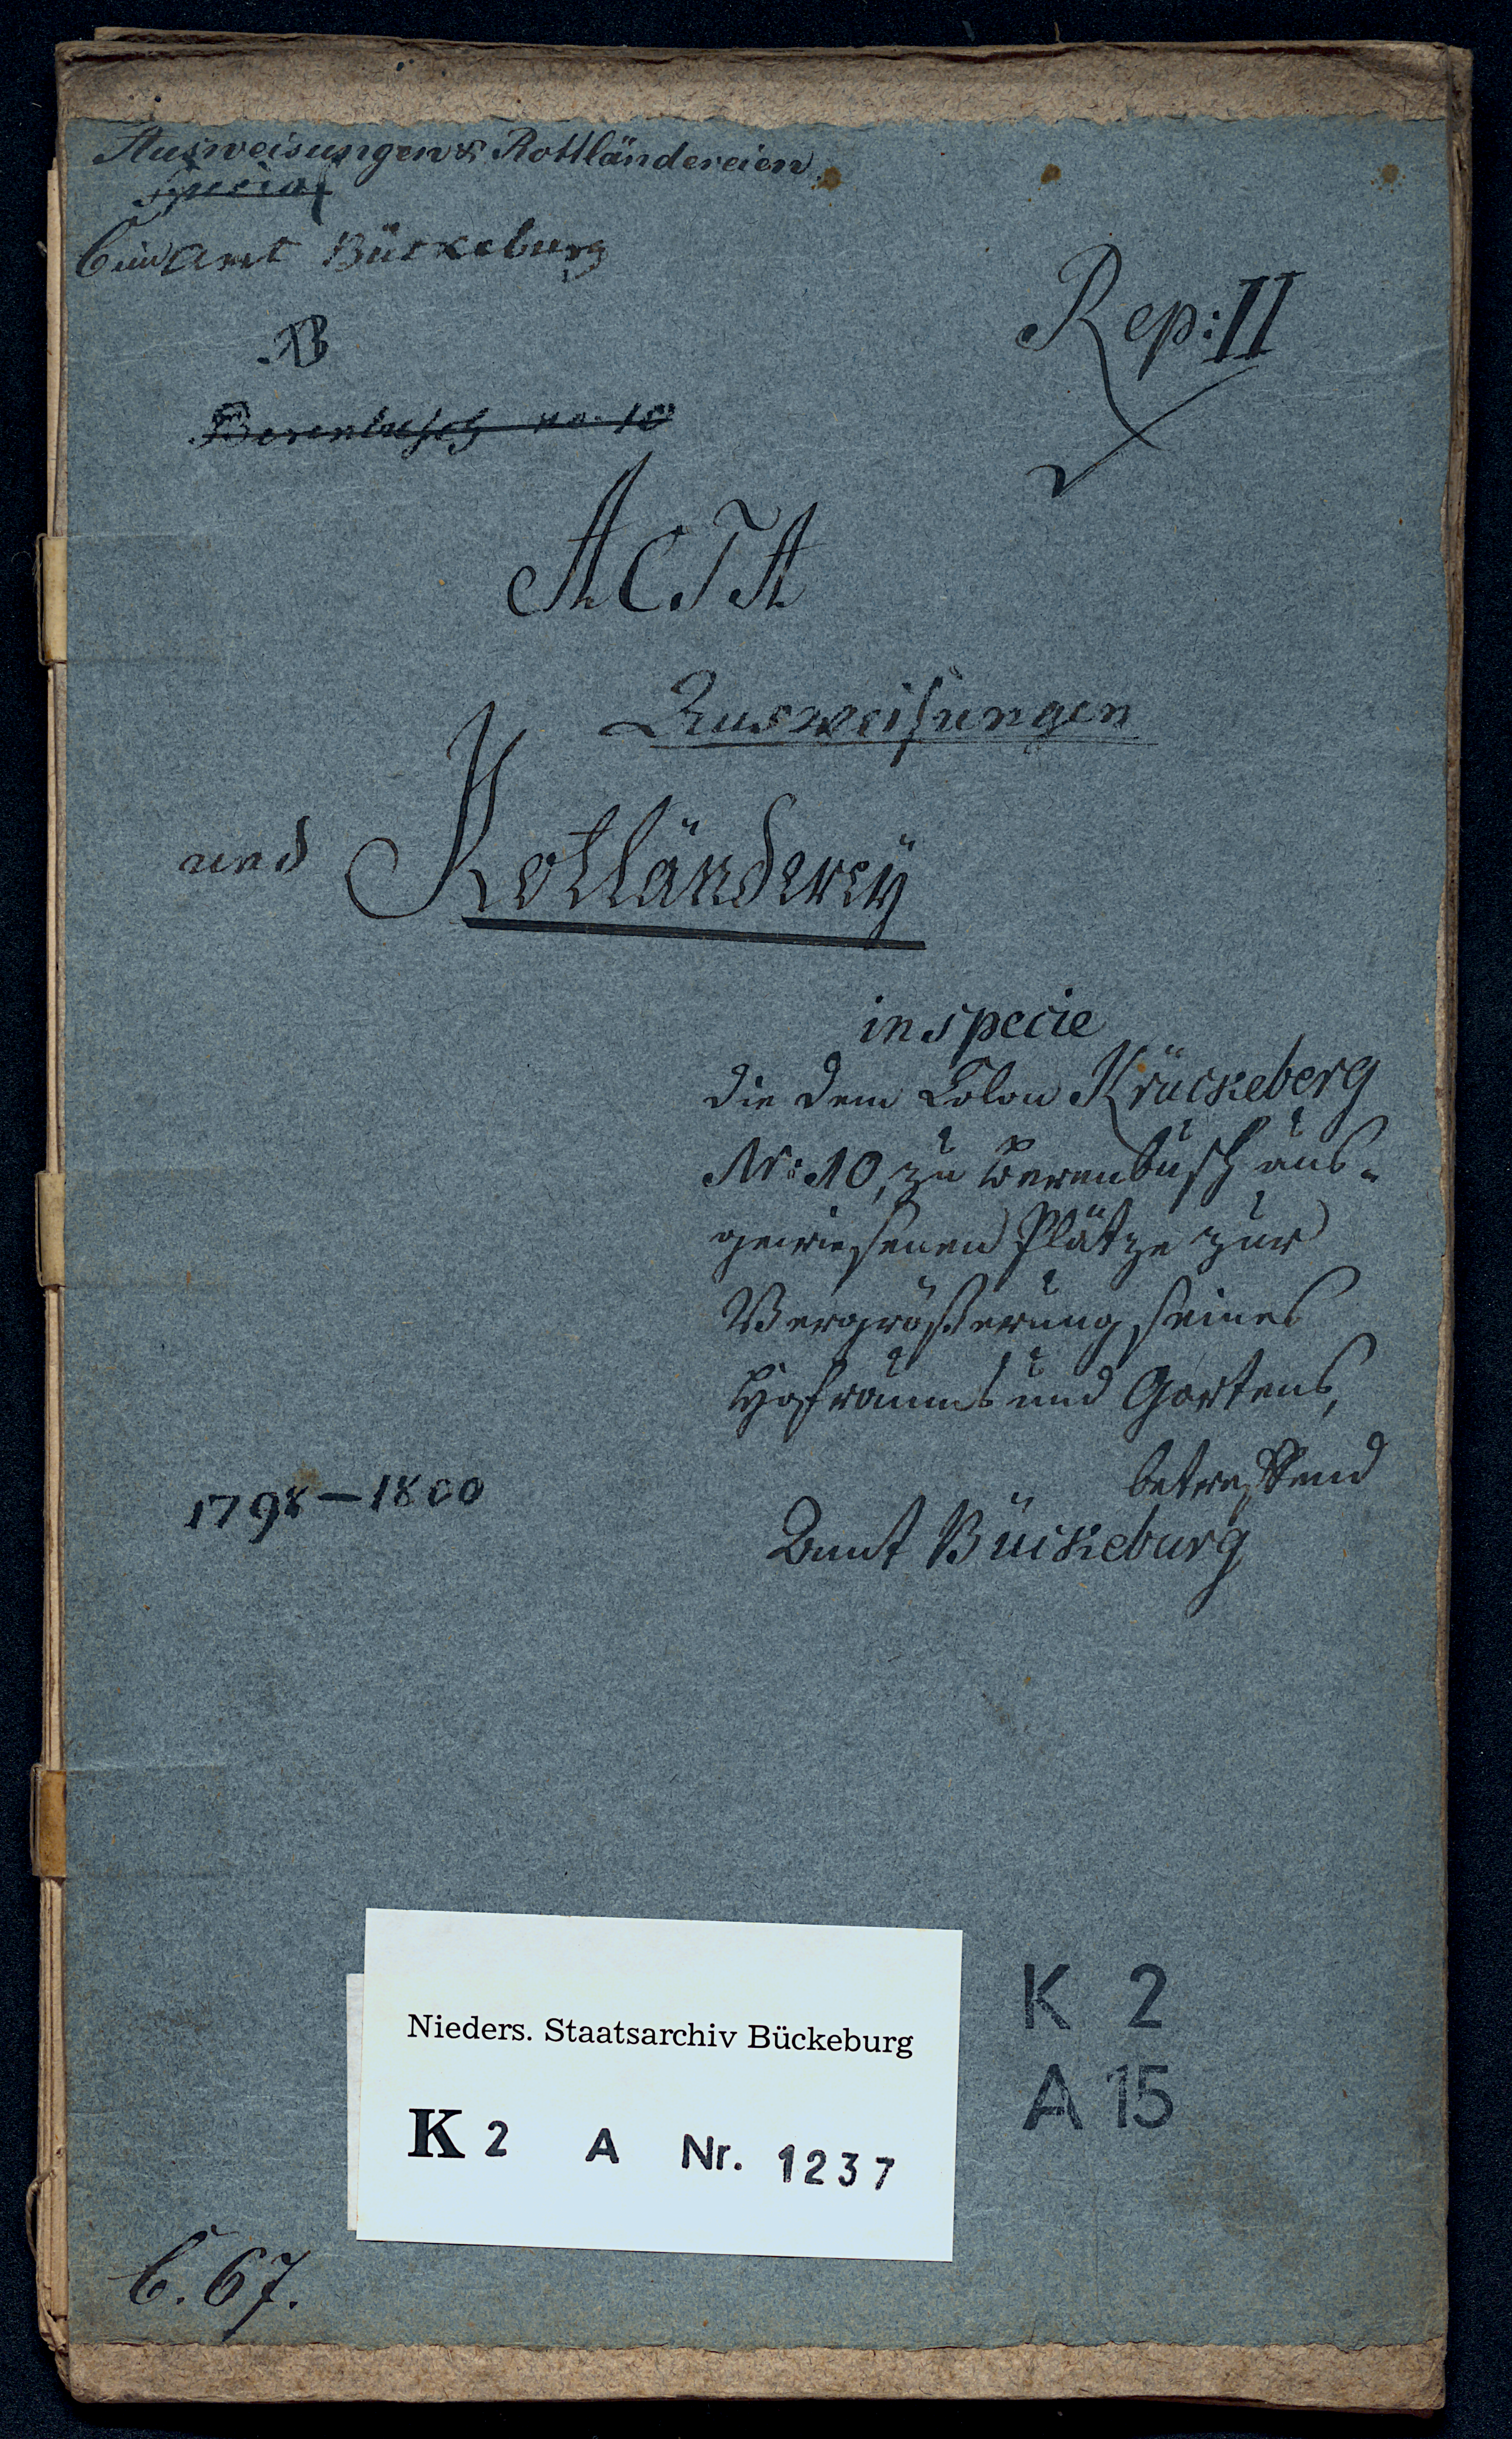 Ausweisungen & Rottländereien.
Special
C im Amt Bückeburg
B
Rep: II
Berenbusch no. 10
ACTA
Ausweisungen
und Rottländerey
in specie
die dem Colon Krückeberg
Nr: 10, zu Berenbusch aus-
gewiesenen Plätze zur
Vergrößerung seines
Hofraums und Gartens,
betreffend
1798-1800
Amt Bückeburg
K 2
A 15
Nieders. Staatsarchiv Bückeburg
K 2 A Nr. 1237
C. 67.